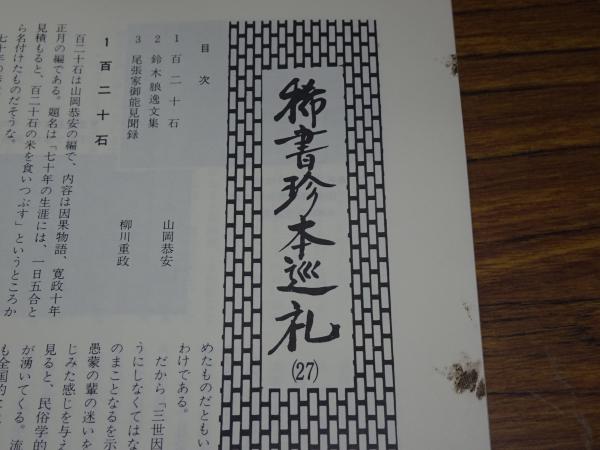 稀書珍本巡礼
(27)
目次
1 百二十石 山岡恭安
2 鈴木朖逸文集
3 尾張家御能見聞録 柳川重政
1 百二十石
百二十石は山岡恭安の編で、内容は因果物語、寛政十年
正月の編である。題名は「七十年の生涯には、一日五合と
見積もると、百二十石の米を食いつぶす」というところか
ら名付けたものだそうな。
めたものだともい
わけである。
だから「三世因
うにしなくてはな
のまことなるを示
愚蒙の輩の迷いを
じみた感じを与え
見ると、民俗学的
が湧いてくる。流
も全国的